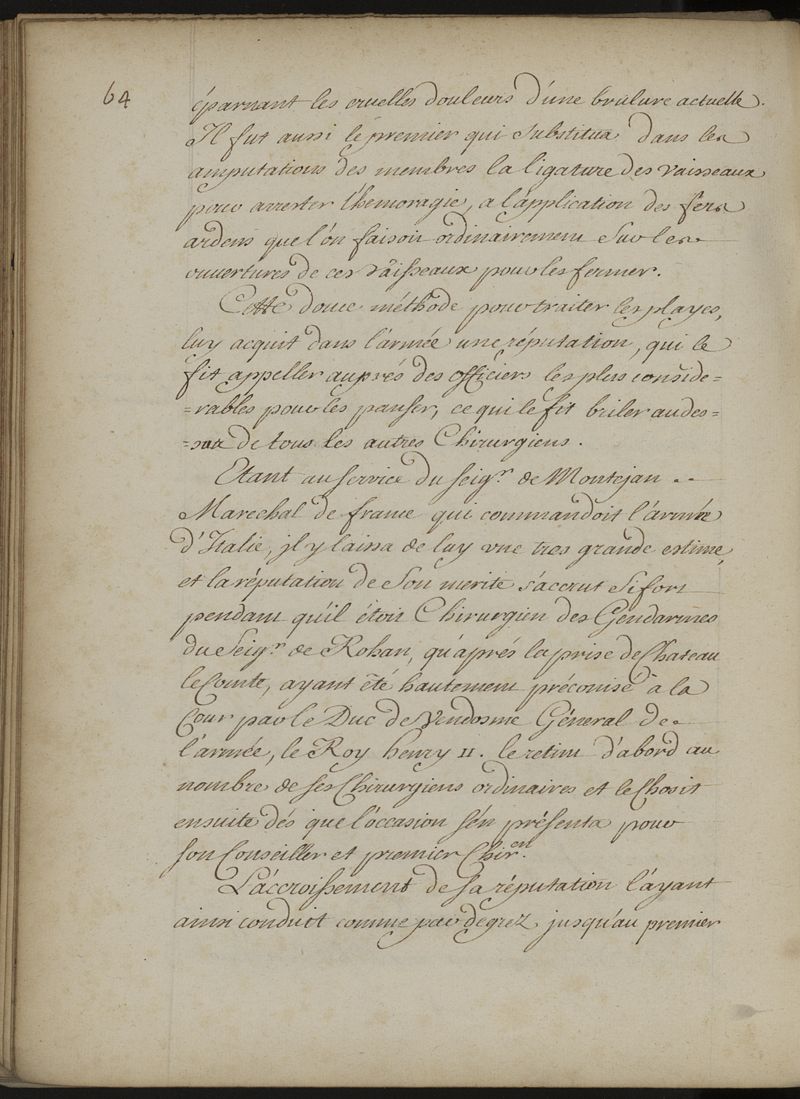 64
éparnant les cruelles douleurs d'une brûlure actuelle.
Il fut aussi le premier qui substitua dans les
amputations des membres la ligature des vaisseaux
pour arrester l'hemoragie, a l'application des fers
ardens que l'on faisoit ordinairement sur les
ouvertures de ces vaisseaux pour les fermer.
Cette douce méthode pour traiter les playes,
luy acquit dans l'armée une réputation, qui le
fit appeller auprés des officiers les plus conside=
=rables pour les panser, ce qui le fit briler audes=
=sus de tous les autres Chirurgiens.
Etant au service du seigr. de Montejan ..
Marechal de france qui commandoit l'armée
d'Italie, il y laissa de luy une tres grande estime,
et la réputation de son merite s'accrut si fort
pendant qu'il étoit Chirurgien des Gendarmes
du Seigr. de Rohan, qu'aprés la prise de Chateau
le Comte, ayant été hautement préconisé à la
Cour par le Duc de Vendosme Géneral de
l'armée, le Roy henry II. le retint d'abord au
nombre de ses Chirurgiens ordinaires et le Chosit
ensuite dés que l'occasion s'en présenta pour
son Conseiller et premier Chiren.
L'accroissement de sa réputation l'ayant
ainsi conduit comme par degrez jusqu'au premier